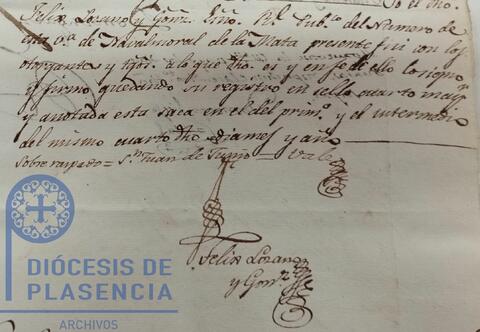 Yo el dho.
Felix Lozano y Gonz. Sno. Rl. Pubco. del Numero de
esta va. de Navalmoral de la Mata presente fui con los
otorgantes y tgos. a lo que dho. es y en fe de ello lo signo
y firmo quedando su registro en sello cuarto mayor
y anotada esta saca en el del primo. y el intermedio
del mismo cuarto dho dia mes y año
Sobre raspado = Sn. Juan de Junio = Vale
Felix Lozano
y Gonz.
DIÓCESIS DE
PLASENCIA
ARCHIVOS